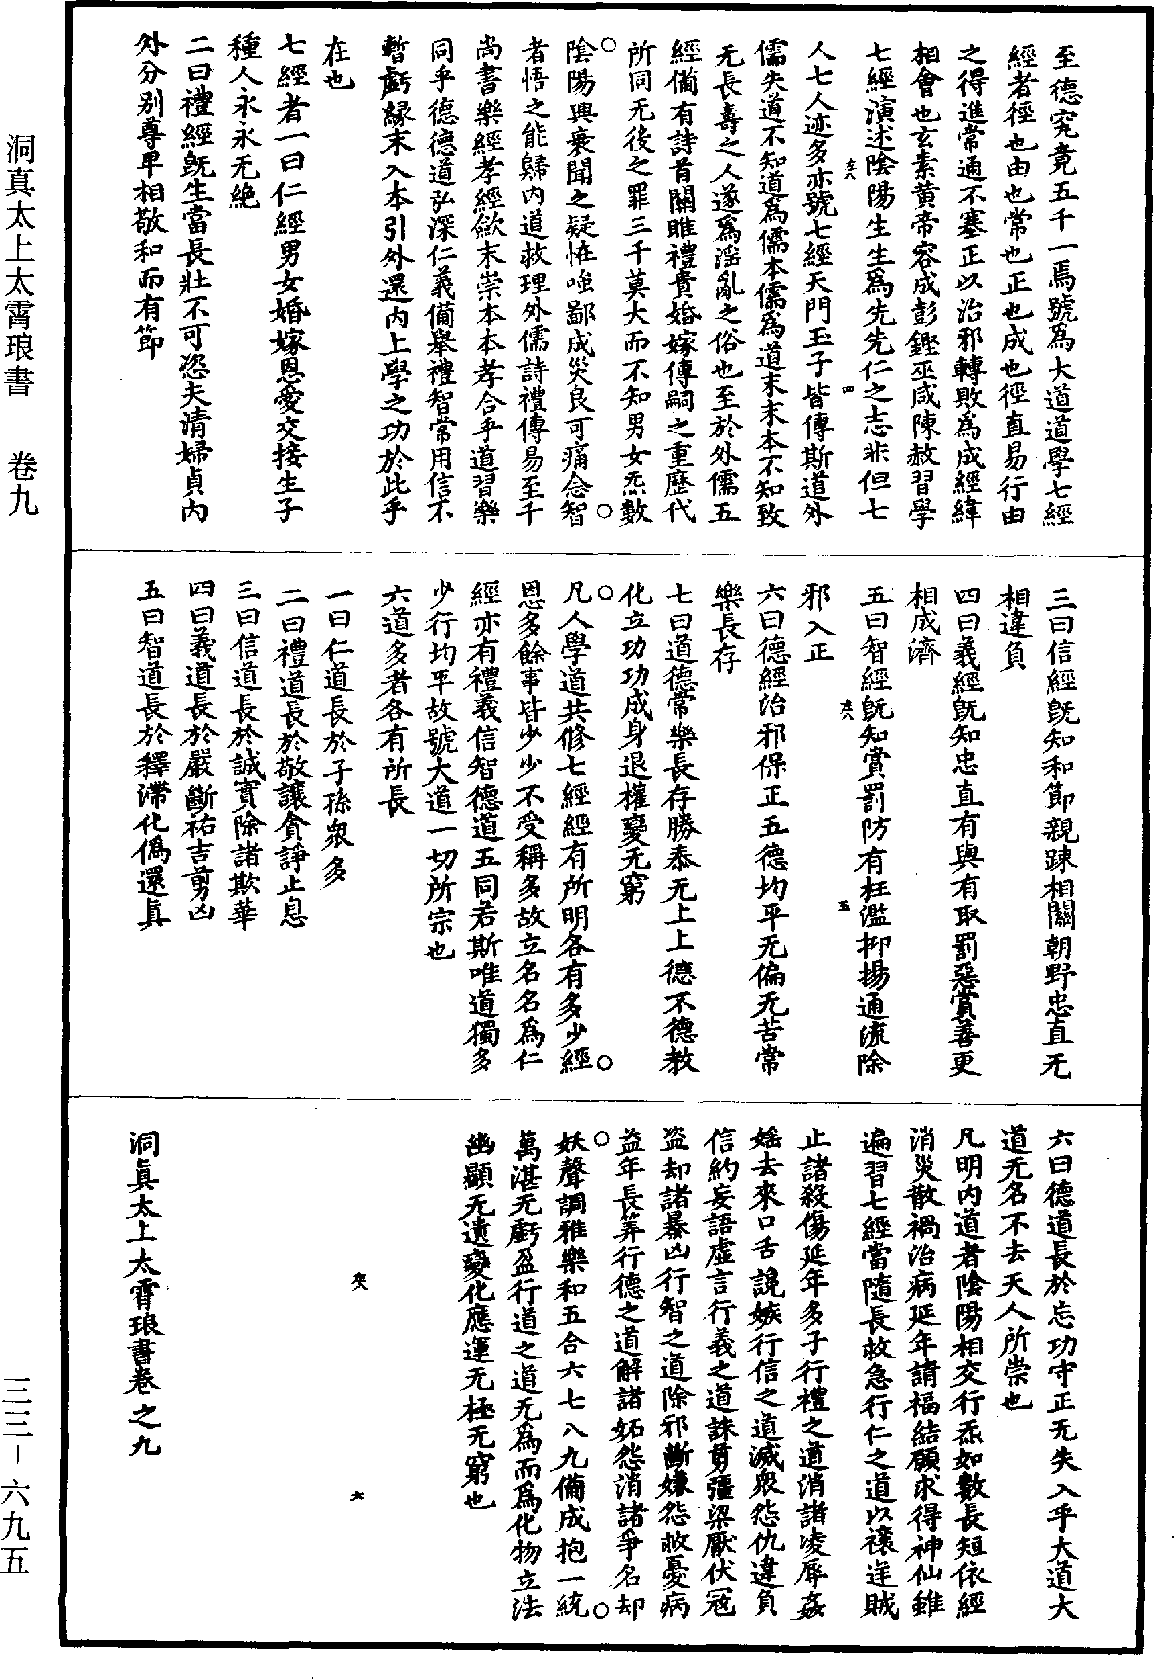 至德究竟五千一焉號爲大道道學七經
經者徑也由也常也正也成也徑直易行由
之得進常通不塞正以治邪轉敗爲成經緯
相會也玄素黃帝容成彭鏗巫咸陳赦習學
七經演述陰陽生生爲先先仁之志非但七
人七人迹多亦號七經天門玉子皆傳斯道外
儒失道不知道爲儒本儒爲道末末本不知致
无長壽之人遂爲淫亂之俗也至於外儒五
經備有詩首關雎禮貴婚嫁傳嗣之重歷代
所同无後之罪三千莫大而不知男女炁數
陰陽興衰聞之疑恠嗤鄙成災良可痛念智
者悟之能歸內道救理外儒詩禮傳易至千
尚書樂經孝經斂末崇本本孝合乎道習樂
同乎德德道弘深仁義備舉禮智常用信不
暫虧緣末入本引外還內上學之功於此乎
在也
七經者一曰仁經男女婚嫁恩愛交接生子
種人永永无絶
二曰禮經旣生當長壯不可恣夫清婦貞內
外分別尊卑相敬和而有節
三曰信經旣知和節親踈相關朝野忠直无
相違負
四曰義經旣知忠直有與有取罰惡賞善更
相成濟
五曰智經旣知賞罰防有枉濫抑揚通流除
邪入正
六曰德經治邪保正五德均平无偏无苦常
樂長存
七曰道德常樂長存勝泰无上上德不德教
化立功功成身退權變无窮
凡人學道共修七經經有所明各有多少經
恩多餘事皆少少不受稱多故立名名爲仁
經亦有禮義信智德道五同若斯唯道獨多
少行均平故號大道一切所宗也
六道多者各有所長
一曰仁道長於子孫衆多
二曰禮道長於敬讓貪諍止息
三曰信道長於誠實除諸欺華
四曰義道長於嚴斷祐吉剪凶
五曰智道長於釋滯化僞還眞
六曰德道長於忘功守正无失入乎大道大
道无名不去天人所崇也
凡明內道者陰陽相交行炁如數長短依經
消災散禍治病延年請福結願求得神仙雖
遍習七經當隨長救急行仁之道以禳迕賊
止諸殺傷延年多子行禮之道消諸凌辱姦
婬去來口舌讒嫉行信之道滅衆怨仇違負
信約妄語虛言行義之道誅剪彊梁厭伏冦
盜却諸暴凶行智之道除邪斷嫌怨救憂病
益年長筭行德之道解諸妬怨消諸爭名却
妖聲調雅樂和五合六七八九備成抱一統
萬湛无虧盈行道之道无爲而爲化物立法
幽顯无遺變化應運无極无窮也
洞眞太上太霄琅書卷之九
洞真太上太霄琅書　卷九
三三－六九五